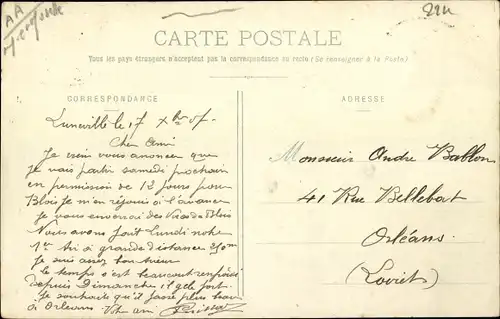 AA
22u
CARTE POSTALE
Tous les pays étrangers n'acceptent pas la correspondance au recto (Se renseigner à la Poste)
CORRESPONDANCE
Luneville le 17 Xbre 07
Cher Ami
Je viens vous anoncer que
je vais partir samedi prochain
en permission de 12 jours pour
Blois je m'en réjouis à l'avance
Je vous enverrai des Vues de Blois
Nous avons fait Lundi notre
1er tir à grande distance 250m
Je suis assez bon tireur
le temps s'est beaucoup refroidi
depuis Dimanche il gèle fort
Je souhaite qu'il fasse plus beau
à Orleans Votre ami
ADRESSE
Monsieur Andre Bablon
41 Rue Bellebat
Orléans
(Loiret)